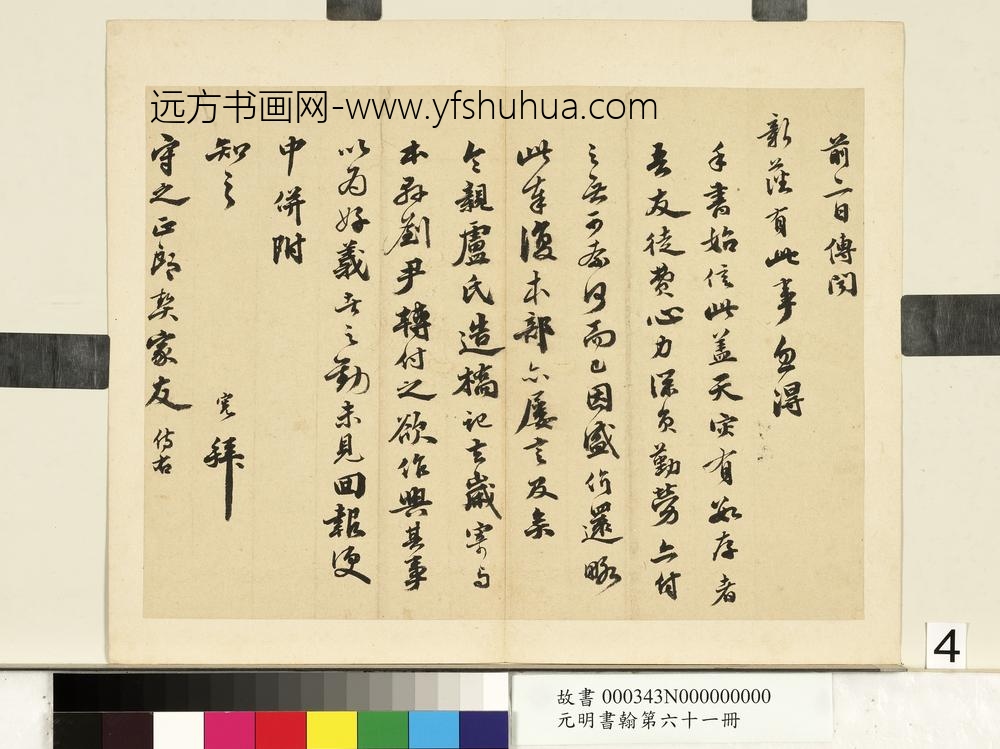 远方书画网-www.yfshuhua.com
前二日傳聞
新莊有此事忽得
手書始信此蓋天灾有数存者
吾友徒費心力深負勤勞亦付
之無可奈何而已因盛价還略
此奉復本部亦屢言及矣
令親盧氏造橋記去歲寄与
本縣劉尹轉付之欲作興其事
以为好義者之勸未見回報便
中併附
知之
寬拜
守之正郎契家友侍右
4
故書 000343N000000000
元明書翰第六十一冊